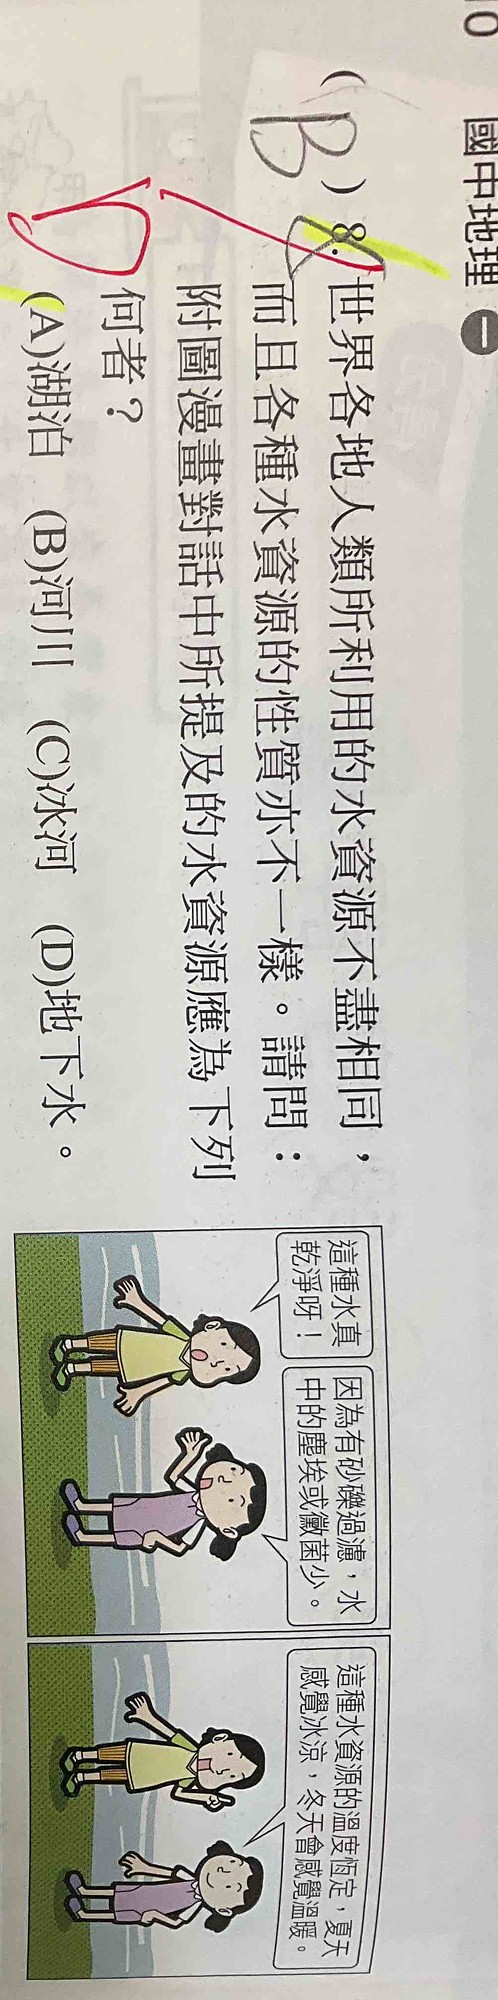 10
國中地理 一
( B ) 8. 世界各地人類所利用的水資源不盡相同，
而且各種水資源的性質亦不一樣。請問：
附圖漫畫對話中所提及的水資源應為下列
何者？
D
(A)湖泊 (B)河川 (C)冰河 (D)地下水。
這種水真
乾淨呀！
因為有砂礫過濾，水
中的塵埃或黴菌少。
這種水資源的溫度恆定，夏天
感覺冰涼，冬天會感覺溫暖。